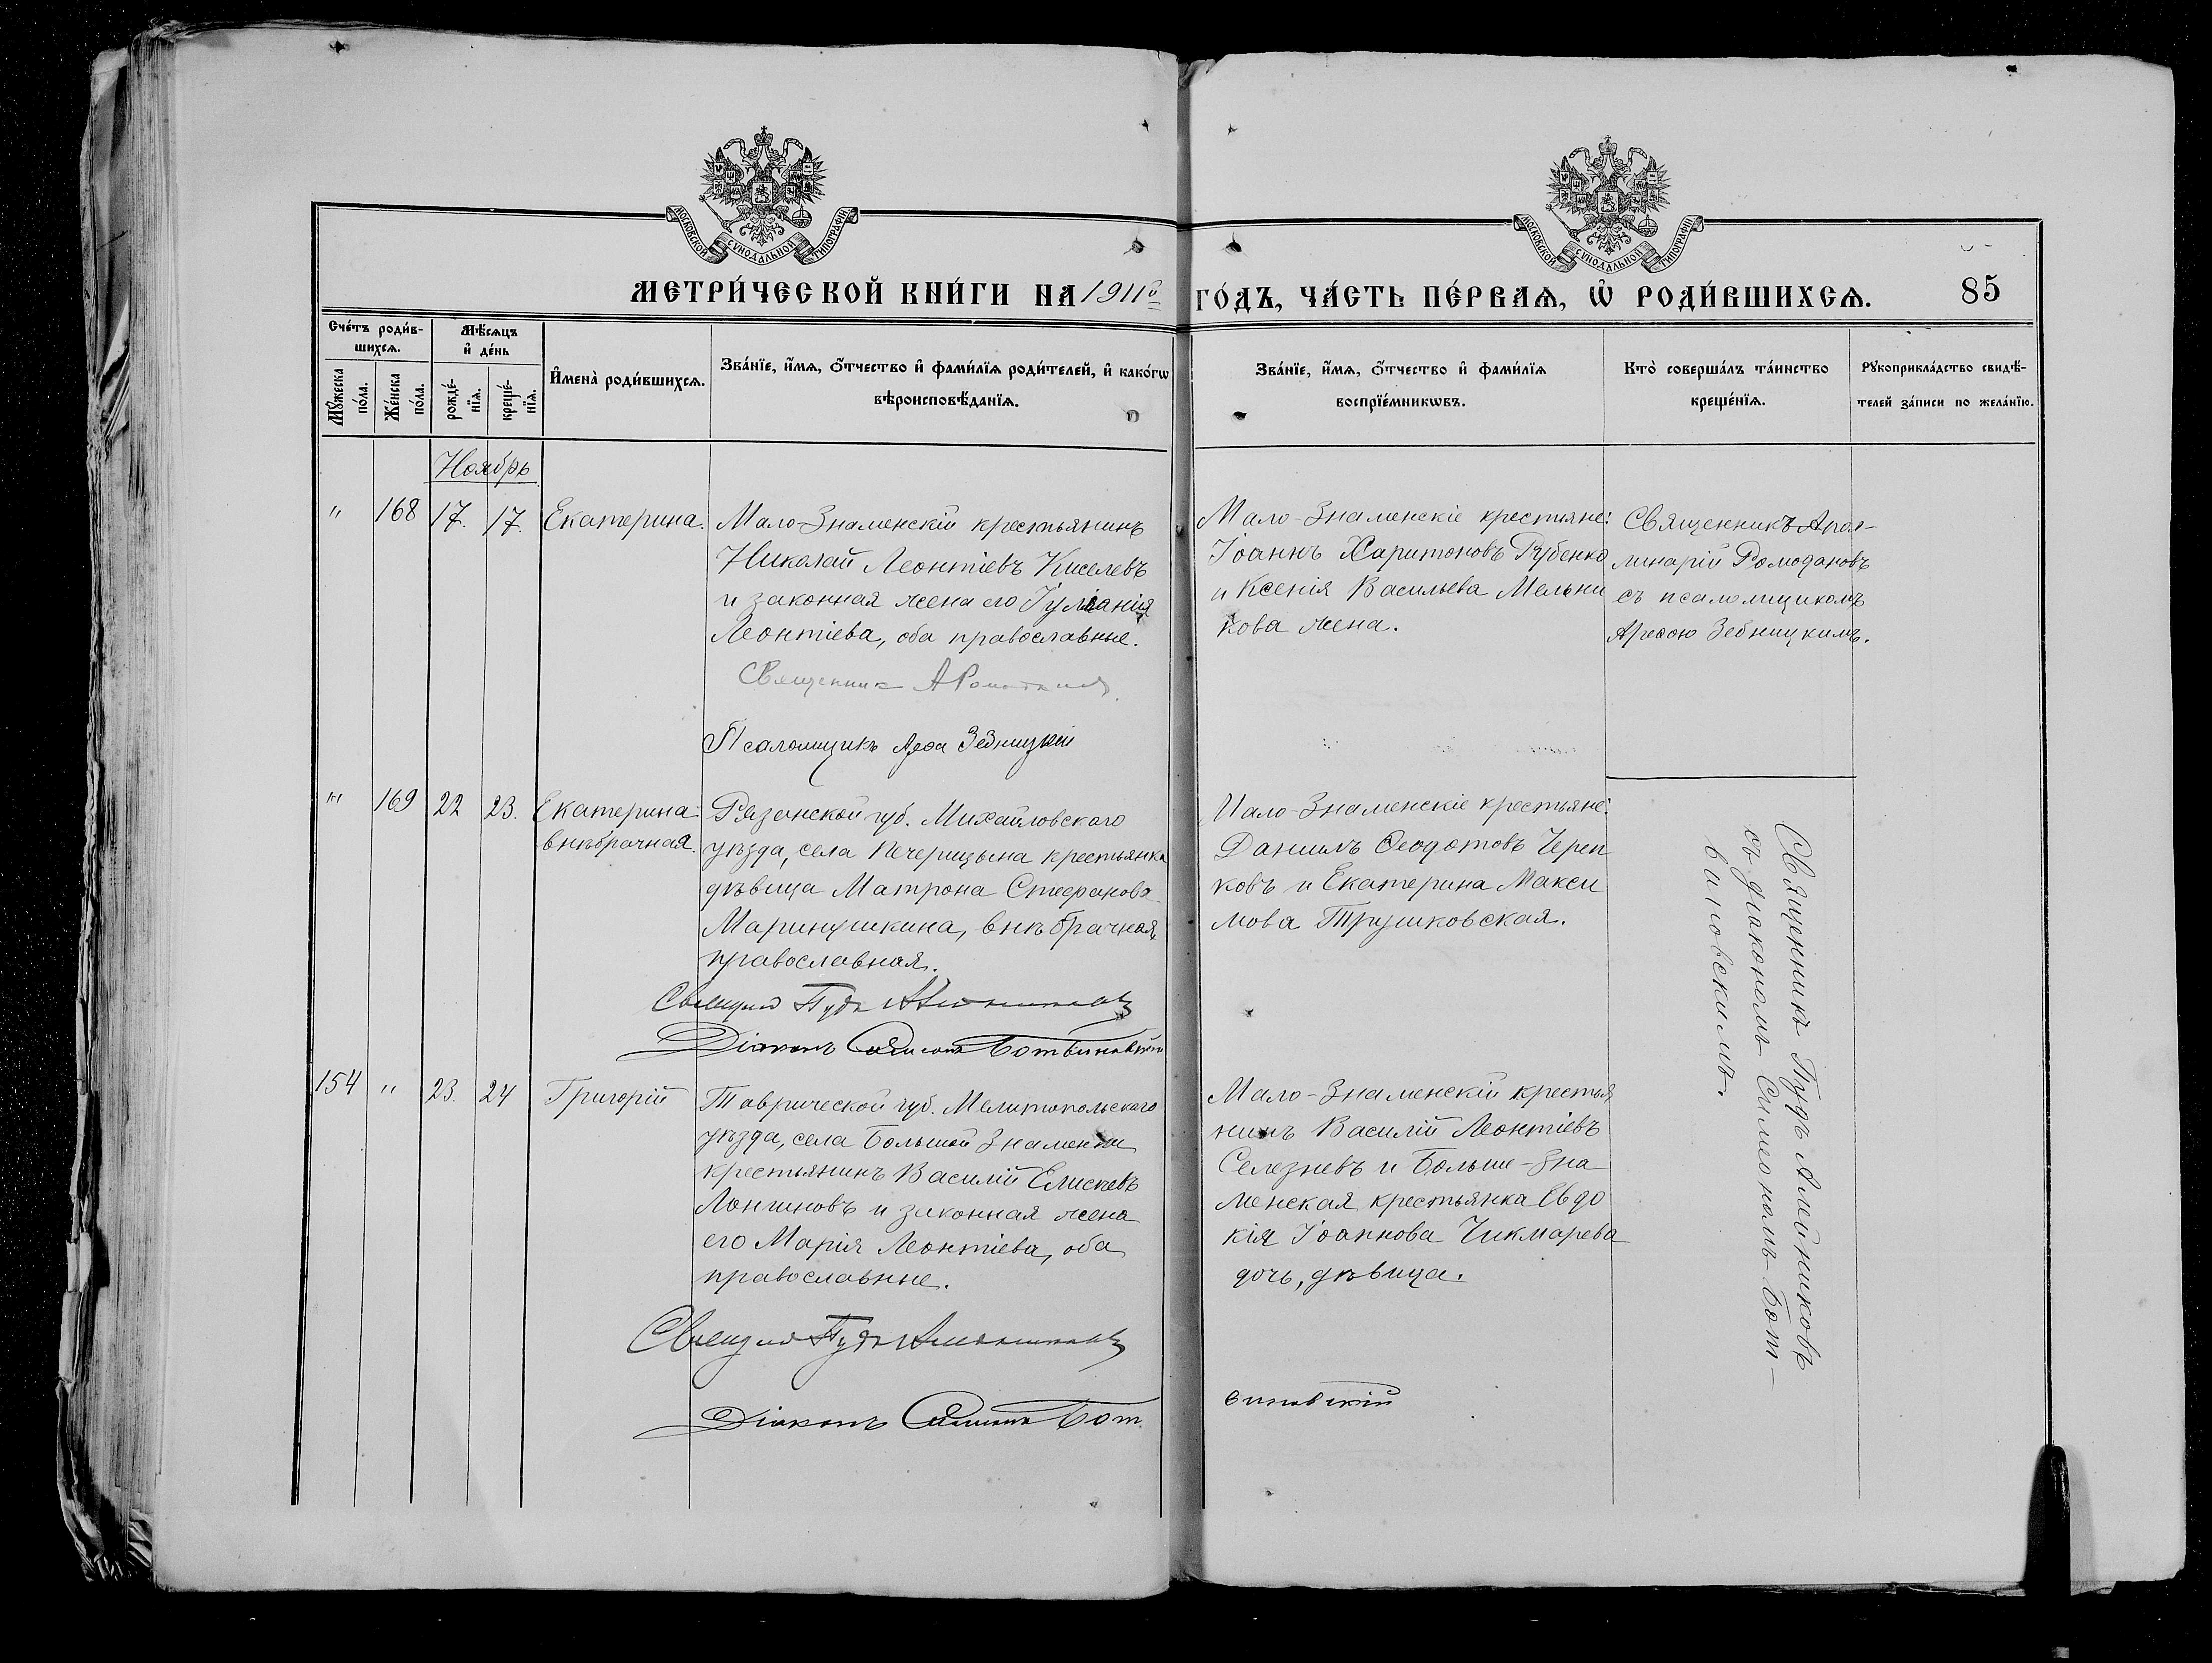 МОСКОВСКОЙ СѴНОДАЛЬНОЙ ТИПОГРАФІИ
МОСКОВСКОЙ СѴНОДАЛЬНОЙ ТИПОГРАФІИ
МЕТРИ́ЧЕСКОЙ КНИ́ГИ НА 1911й ГО́ДЪ, ЧА́СТЬ ПЕ́РВАѦ, Ѡ҆ РОДИ́ВШИХСѦ. 85
Сче́тъ роди́в-
шихсѧ.
Мꙋ́жеска по́ла.
Же́нска по́ла.
Мѣ́сѧцъ
и҆ де́нь
рожде́-
нїѧ.
креще́-
нїѧ.
И҆мена̀ роди́вшихсѧ.
Зва́нїе, и҆́мѧ, ѻ҆́тчество и҆ фами́лїѧ роди́телей, и҆ како́гѡ
вѣроисповѣ́данїѧ.
Зва́нїе, и҆́мѧ, ѻ҆́тчество и҆ фами́лїѧ
воспрїе́мникѡвъ.
Кто̀ соверша́лъ та́инство
креще́нїѧ.
Рꙋкоприкла́дство свидѣ́-
телей за́писи по жела́нїю.
Ноябрь
" 168 17. 17. Екатерина.
Мало-Знаменскій крестьянинъ
Николай Леонтіевъ Киселевъ
и законная жена его Іуліанія
Леонтіева, оба православные.
Священник А
Псаломщикъ Арефа Зебницкій
Мало-Знаменскіе крестьяне:
Іоаннъ Харитоновъ Рубенко
и Ксенія Васильева Мельни
кова жена.
Священникъ Апол-
линарій Ромодановъ
съ псаломщикомъ
Арефою Зебницкимъ.
" 169 22 23. Екатерина
внѣбрачная.
Рязанской губ. Михайловского
уѣзда, села Печерицына крестьянка
дѣвица Матрона Стефанова
Маринушкина, внѣбрачная,
православная.
Священ Пудъ Алейниковъ
Діаконъ Симеонъ Ботвиновскій
Мало-Знаменскіе крестьяне:
Даниилъ Ѳеодотовъ Череп
ковъ и Екатерина Макси
мова Трушковская.
Священникъ Пудъ Алейниковъ
съ діакономъ Симеономъ Бот-
виновскимъ.
154 " 23. 24 Григорій
Таврической губ. Мелитопольского
уѣзда, села Большой Знаменки
крестьянинъ Василій Елисѣевъ
Лонгиновъ и законная жена
его Марія Леонтіева, оба
православные.
Священ Пудъ Алейниковъ
Діаконъ Симеонъ Бот
виновскій
Мало-Знаменскій крестья
нинъ Василій Леонтіевъ
Селезневъ и Больше-Зна
менская крестьянка Евдо
кія Іоаннова Чикмарева
дочь, дѣвица.